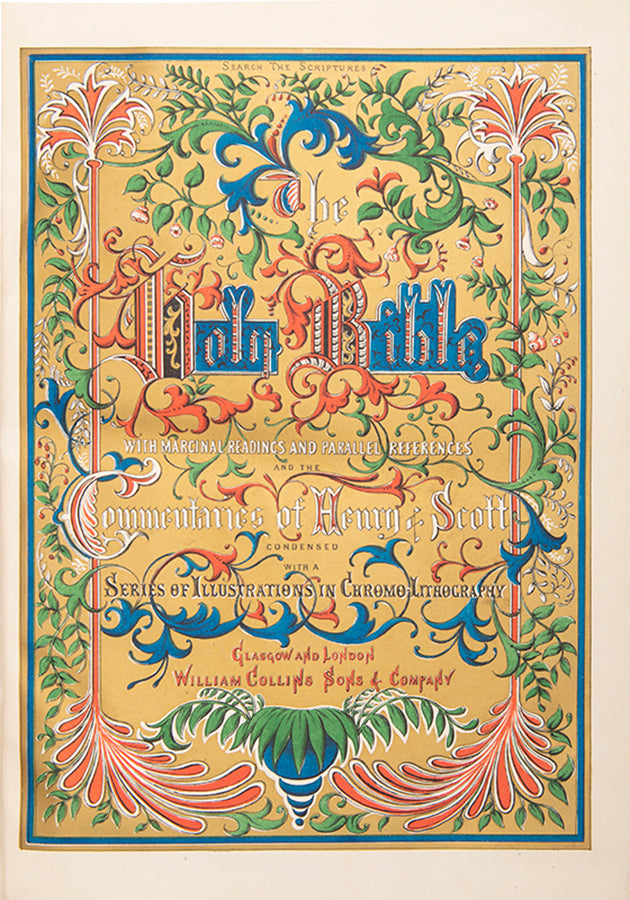 SEARCH THE SCRIPTURES
The
Holy Bible,
WITH MARGINAL READINGS AND PARALLEL REFERENCES
AND THE
Commentaries of Henry & Scott
CONDENSED
WITH A
SERIES OF ILLUSTRATIONS IN CHROMO-LITHOGRAPHY
GLASGOW AND LONDON
WILLIAM COLLINS SONS & COMPANY